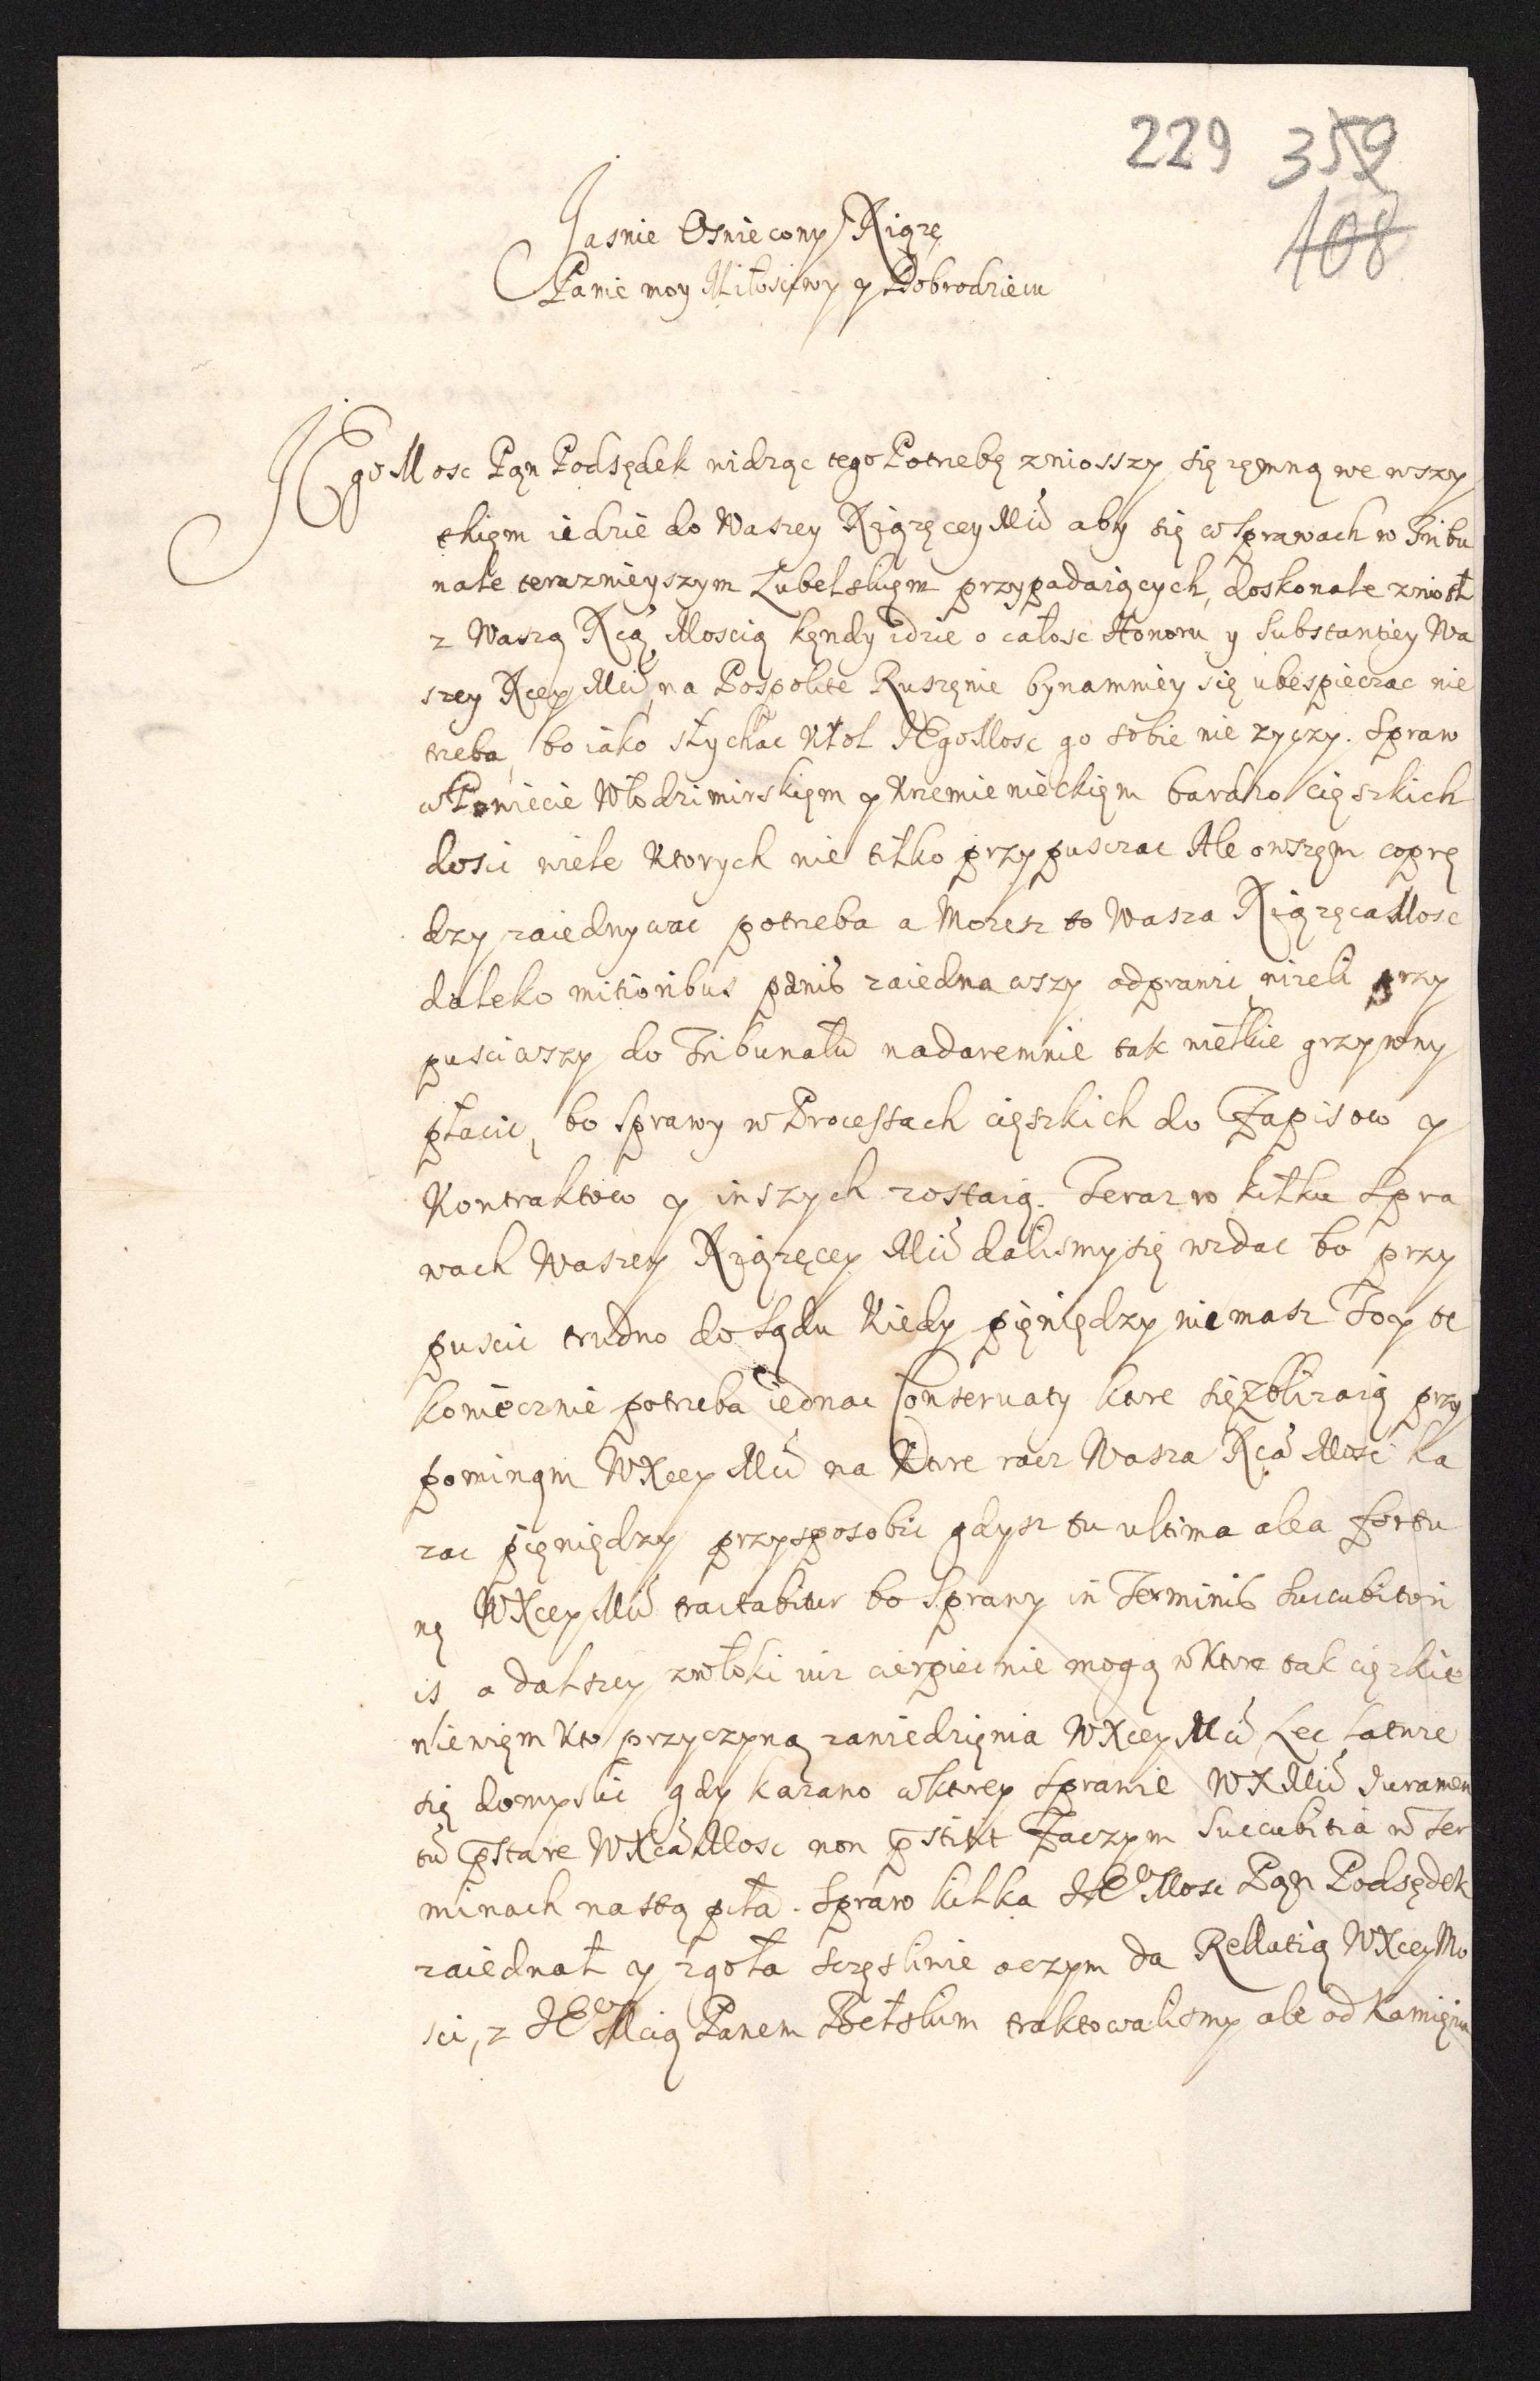 229 359
408
Jasnie Osniecony Xiązę
Panie moy Miłosciwy y Dobrodzieiu
JEgoMosc Pąn Podsędek widząc tego Potrebę zniosszy się zęmną we wszy
tkięm iedzie do Waszey Xiązęcey Mći aby się w Sprawach w Tribu
nale teraznieyszym Lubelskięm przypadaiących, doskonale zniosł
z Waszą Xcą Moscią kęndy idzie o całosc Honoru y Substantiey Wa
szey Xcey Mći, na Pospolite Ruszęnie bynamniey się ubespieczac nie
treba, bo iako słychac Krol JEgoMosc go sobie nie zyczy. Spraw
w Powiecie Włodzimirskięm y Krzemienieckięm bardzo cięszkich
dosic wiele Ktorych nie tilko przypusczac Ale owszęm coprę
dzy zaiednywac potrzeba a Mozesz to Wasza Xiązęca Mosc
daleko mitioribus pænis zaiednawszy odprawic nizeli przy
pusciwszy do Tribunału nadaremnie tak wielkie grzywny
płacic, bo Sprawy w Processach cięszkich do Zapisow y
Kontraktow y inszych zostaią. Teraz w kilku Spra
wach Waszey Xiązęcey Mći dalismy się wzdac bo przy
puscic trudno do Sądu Kiedy pięniędzy niemasz To y te
koniecznie potrzeba iednac Conservaty ktore się zblizaią przy
pominąm WXcey Mći na Ktore racz Wasza Xca Mosc ka
zac pięniędzy przysposobic gdysz tu ultima alea fortu
nę WXcey Mći tractabitur bo Sprawy in Terminis Succubitori
is a dalszey zwłoki iuz cierpiec nie mogą w Ktore tak cięzkie
niewięm Kto przyczyną zawiedzięnia WXcey Mći Lec łatwie
się domyslic gdy kazano w ktorey Sprawie WX Mći Juramen
tu pstare WXca Mosc non pstitit Zaczym Succubitia w Ter
minach nastą piła. Spraw kilka JEo Mosc Pąn Podsędek
zaiednał y zgoła sczęsliwie oczym da Rellatią WXcey Mo
sci, z JEo Mcią Panem Bełskim traktowalismy ale od Kamięnia